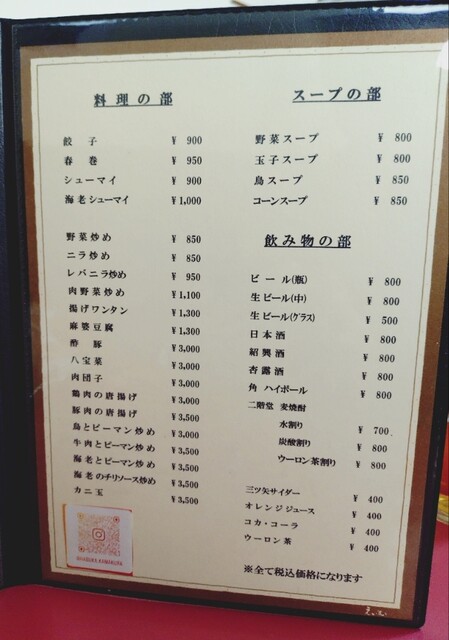 料理の部
餃子 ¥ 900
春巻 ¥ 950
シューマイ ¥ 900
海老シューマイ ¥1,000
野菜炒め ¥ 850
ニラ炒め ¥ 850
レバニラ炒め ¥ 950
肉野菜炒め ¥1,100
揚げワンタン ¥1,300
麻婆豆腐 ¥1,300
酢豚 ¥3,000
八宝菜 ¥3,000
肉団子 ¥3,000
鶏肉の唐揚げ ¥3,000
豚肉の唐揚げ ¥3,500
鳥とピーマン炒め ¥3,000
牛肉とピーマン炒め ¥3,500
海老とピーマン炒め ¥3,500
海老のチリソース炒め ¥3,500
カニ玉 ¥3,500
スープの部
野菜スープ ¥ 800
玉子スープ ¥ 800
鳥スープ ¥ 850
コーンスープ ¥ 850
飲み物の部
ビール(瓶) ¥ 800
生ビール(中) ¥ 800
生ビール(グラス) ¥ 500
日本酒 ¥ 800
紹興酒 ¥ 800
杏露酒 ¥ 800
角 ハイボール ¥ 800
二階堂 麦焼酎
水割り ¥ 700
炭酸割り ¥ 800
ウーロン茶割り ¥ 800
三ツ矢サイダー ¥ 400
オレンジジュース ¥ 400
コカ・コーラ ¥ 400
ウーロン茶 ¥ 400
※全て税込価格になります